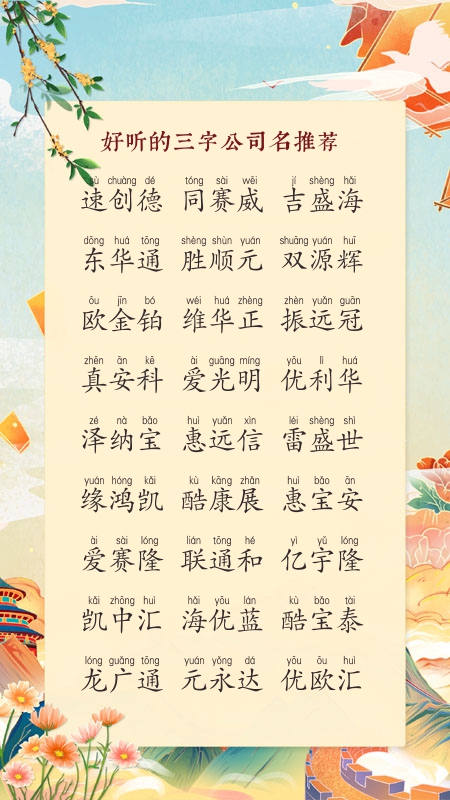 好听的三字公司名推荐
sù chuàng dé tóng sài wēi jí shèng hǎi
速创德 同赛威 吉盛海
dōng huá tōng shèng shùn yuán shuāng yuán huī
东华通 胜顺元 双源辉
ōu jīn bó wéi huá zhèng zhèn yuǎn guān
欧金铂 维华正 振远冠
zhēn ān kē ài guāng míng yōu lì huá
真安科 爱光明 优利华
zé nà bǎo huì yuǎn xìn léi shèng shì
泽纳宝 惠远信 雷盛世
yuán hóng kǎi kù kāng zhǎn huì bǎo ān
缘鸿凯 酷康展 惠宝安
ài sài lóng lián tōng hé yì yǔ lóng
爱赛隆 联通和 亿宇隆
kǎi zhōng huì hǎi yōu lán kù bǎo tài
凯中汇 海优蓝 酷宝泰
lóng guǎng tōng yuán yǒng dá yōu ōu huì
龙广通 元永达 优欧汇